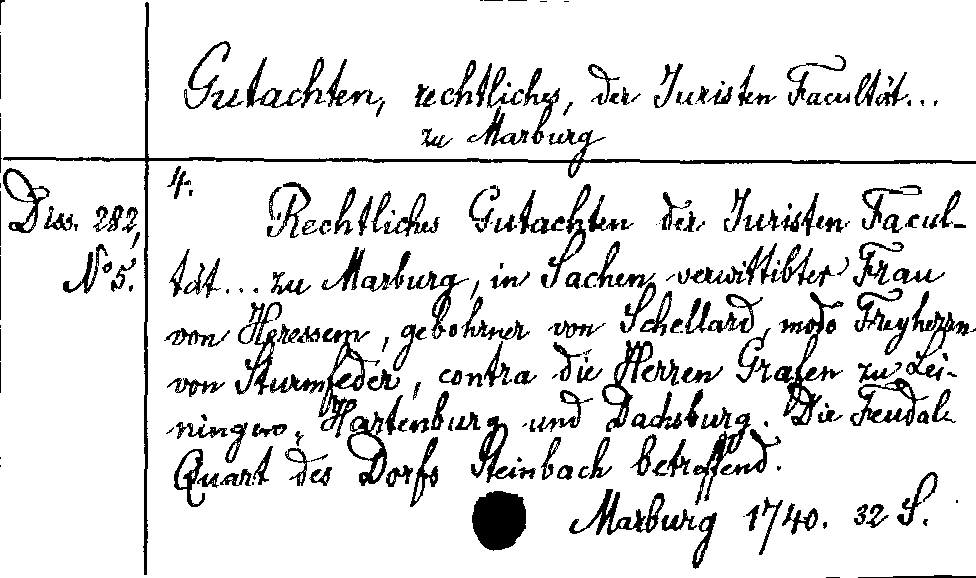 Gutachten, rechtliches, der Juristen Facultät...
zu Marburg
Diss. 282,
No 5.
4.
Rechtliches Gutachten der Juristen Facul-
tät... zu Marburg, in Sachen verwittibter Frau
von Heressem, gebohrner von Schellard, modo Freyherrn
von Sturmfeder, contra die Herren Grafen zu Lei-
ningen-Hartenburg und Dachsburg. Die Feudal-
Quart des Dorfs Steinbach betreffend.
Marburg 1740. 32 S.